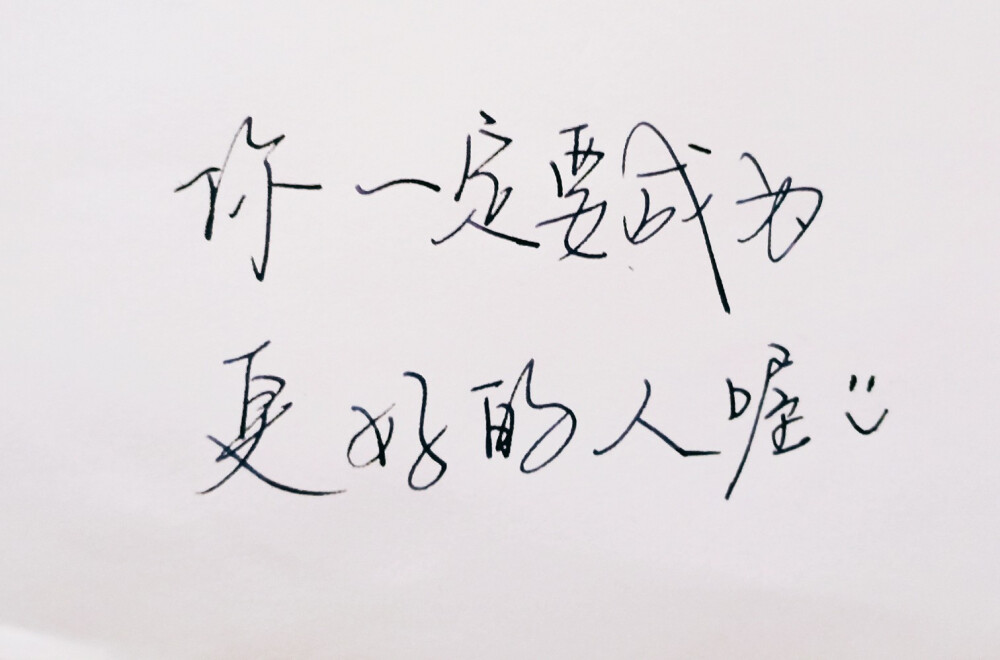 你一定要成为
更好的人喔